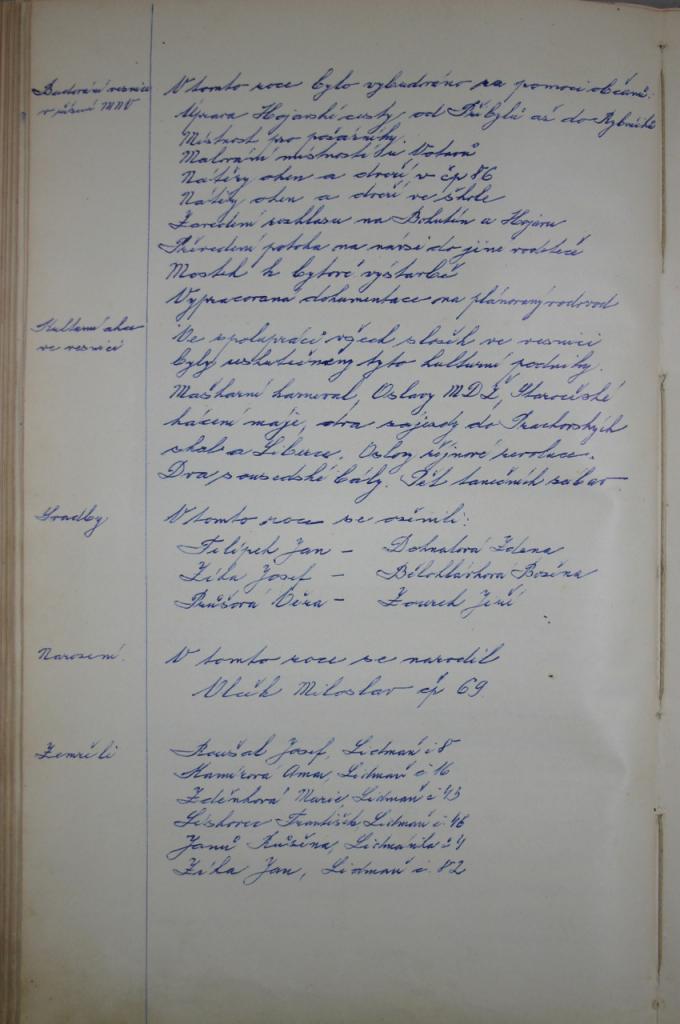 Budování vesnice
v rámci MNV
V tomto roce bylo vybudováno za pomoci občanů:
Úprava Hojarské cesty od Přibylů až do Rybníčků
Místnost pro požárníky.
Malování místností u Votavů
Nátěry oken a dveří v čp 86
Nátěry oken a dveří ve škole
Zavedení rozhlasu na Bohutín a Hojaru
Převedení potoka na návsi do jiné vodoteče
Mostek k bytové výstavbě
Vypracovaná dokumentace na plánovaný vodovod
Kulturní akce
ve vesnici
Ve spolupráci všech složek ve vesnici
byly uskutečněny tyto kulturní podniky.
Maškarní karneval, Oslavy MDŽ, Staročeské
kácení máje, dva zájezdy do Prachovských
skal a Liberce. Oslavy říjnové revoluce.
Dva sousedské bály. Pět tanečních zábav.
Svadby
V tomto roce se oženili:
Filípek Jan – Dohnalová Zdena
Zíka Josef – Bělohlávková Božena
Průšová Věra – Zourek Jiří
Narození.
V tomto roce se narodil
Vlček Miloslav čp 69.
Zemřeli
Roušal Josef, Lidmaň č 8
Anna, Lidmaň č 16
Zděnková Marie, Lidmaň č 43
František, Lidmaň č. 48
Janů Růžena, Lidmaňka č 4
Zíka Jan, Lidmaň č. 82